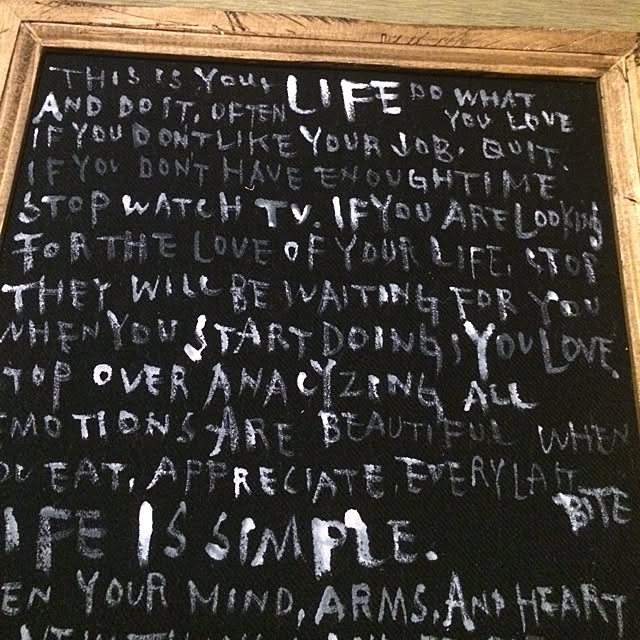 THIS IS YOUR LIFE DO WHAT
AND DO IT, OFTEN YOU LOVE
IF YOU DON'T LIKE YOUR JOB, QUIT.
IF YOU DON'T HAVE ENOUGH TIME
STOP WATCH TV. IF YOU ARE LOOKING
FOR THE LOVE OF YOUR LIFE, STOP
THEY WILL BE WAITING FOR YOU
WHEN YOU START DOING, YOU LOVE
TOP OVER ANALYZING ALL
EMOTIONS ARE BEAUTIFUL WHEN
OU EAT, APPRECIATE, EVERY LAST
BITE
IFE IS SIMPLE.
EN YOUR MIND, ARMS, AND HEART